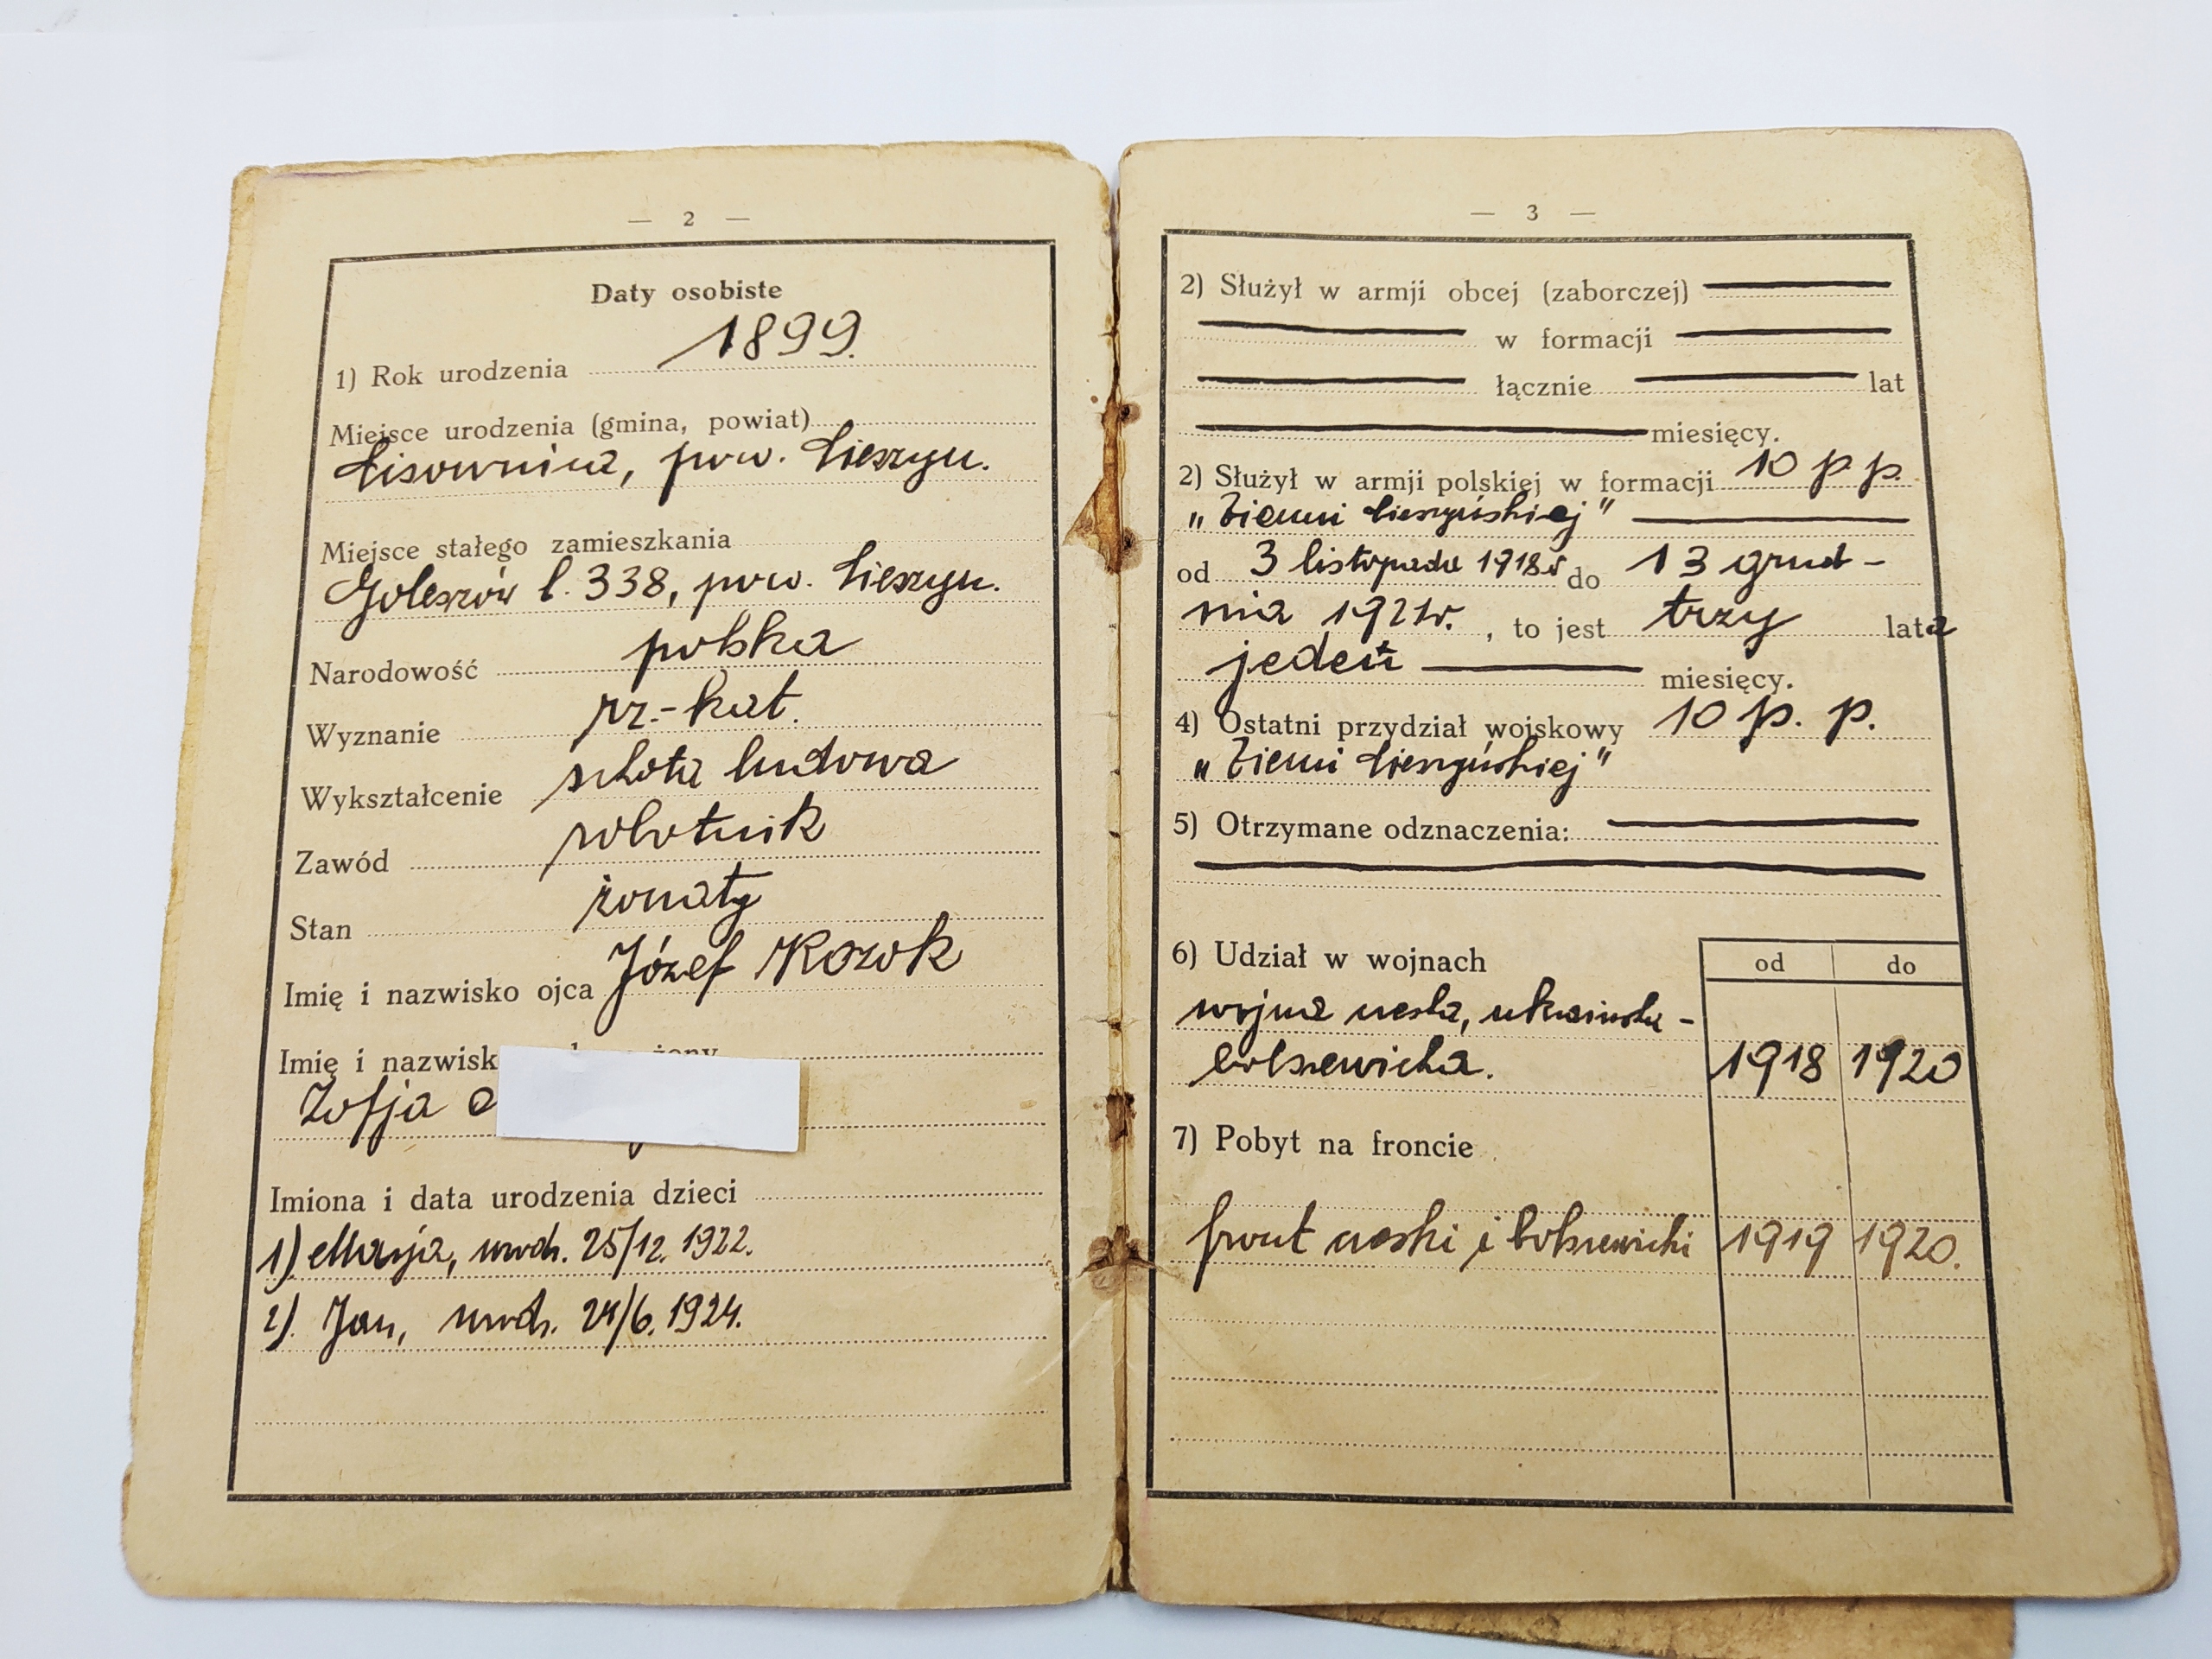 — 2 —
Daty osobiste
1) Rok urodzenia 1899.
Miejsce urodzenia (gmina, powiat)
Lisownica, pow. Cieszyn.
Miejsce stałego zamieszkania
Goleszów l. 338, pow. Cieszyn.
Narodowość polska
Wyznanie rz.-kat.
Wykształcenie szkoła ludowa
Zawód robotnik
Stan żonaty
Imię i nazwisko ojca Józef Kozok
Imię i nazwisk żony
Zofja
Imiona i data urodzenia dzieci
1) Marja, urodz. 25/12. 1922.
2). Jan, urodz. 24/6. 1924.
— 3 —
2) Służył w armji obcej (zaborczej)
w formacji
łącznie lat
miesięcy.
2) Służył w armji polskiej w formacji 10 p. p.
„Ziemi Cieszyńskiej"
od 3 listopada 1918r do 13 grud-
nia 1921r., to jest trzy lata
jeden miesięcy.
4) Ostatni przydział wojskowy 10 p. p.
„Ziemi Cieszyńskiej"
5) Otrzymane odznaczenia:
6) Udział w wojnach od do
wojna czeska, ukraińska-
bolszewicka. 1918 1920
7) Pobyt na froncie
front czeski i bolszewicki 1919 1920.